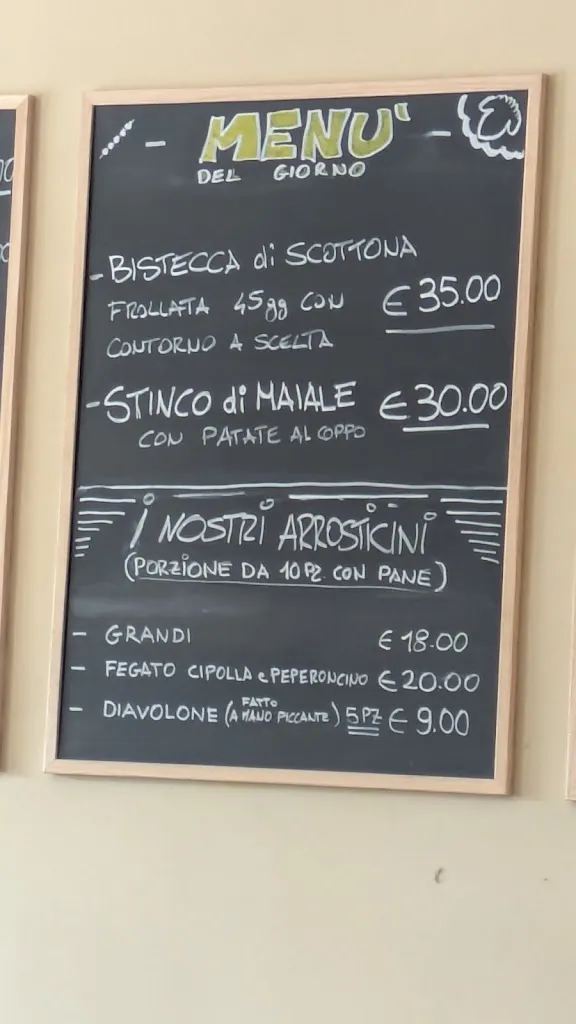 MENU'
DEL GIORNO
- BISTECCA di SCOTTONA
FROLLATA 45gg CON € 35.00
CONTORNO A SCELTA
- STINCO di MAIALE € 30.00
CON PATATE AL COPPO
I NOSTRI ARROSTICINI
(PORZIONE DA 10 PZ. CON PANE)
- GRANDI € 18.00
- FEGATO CIPOLLA e PEPERONCINO € 20.00
- DIAVOLONE (FATTO A MANO PICCANTE) 5 PZ € 9.00